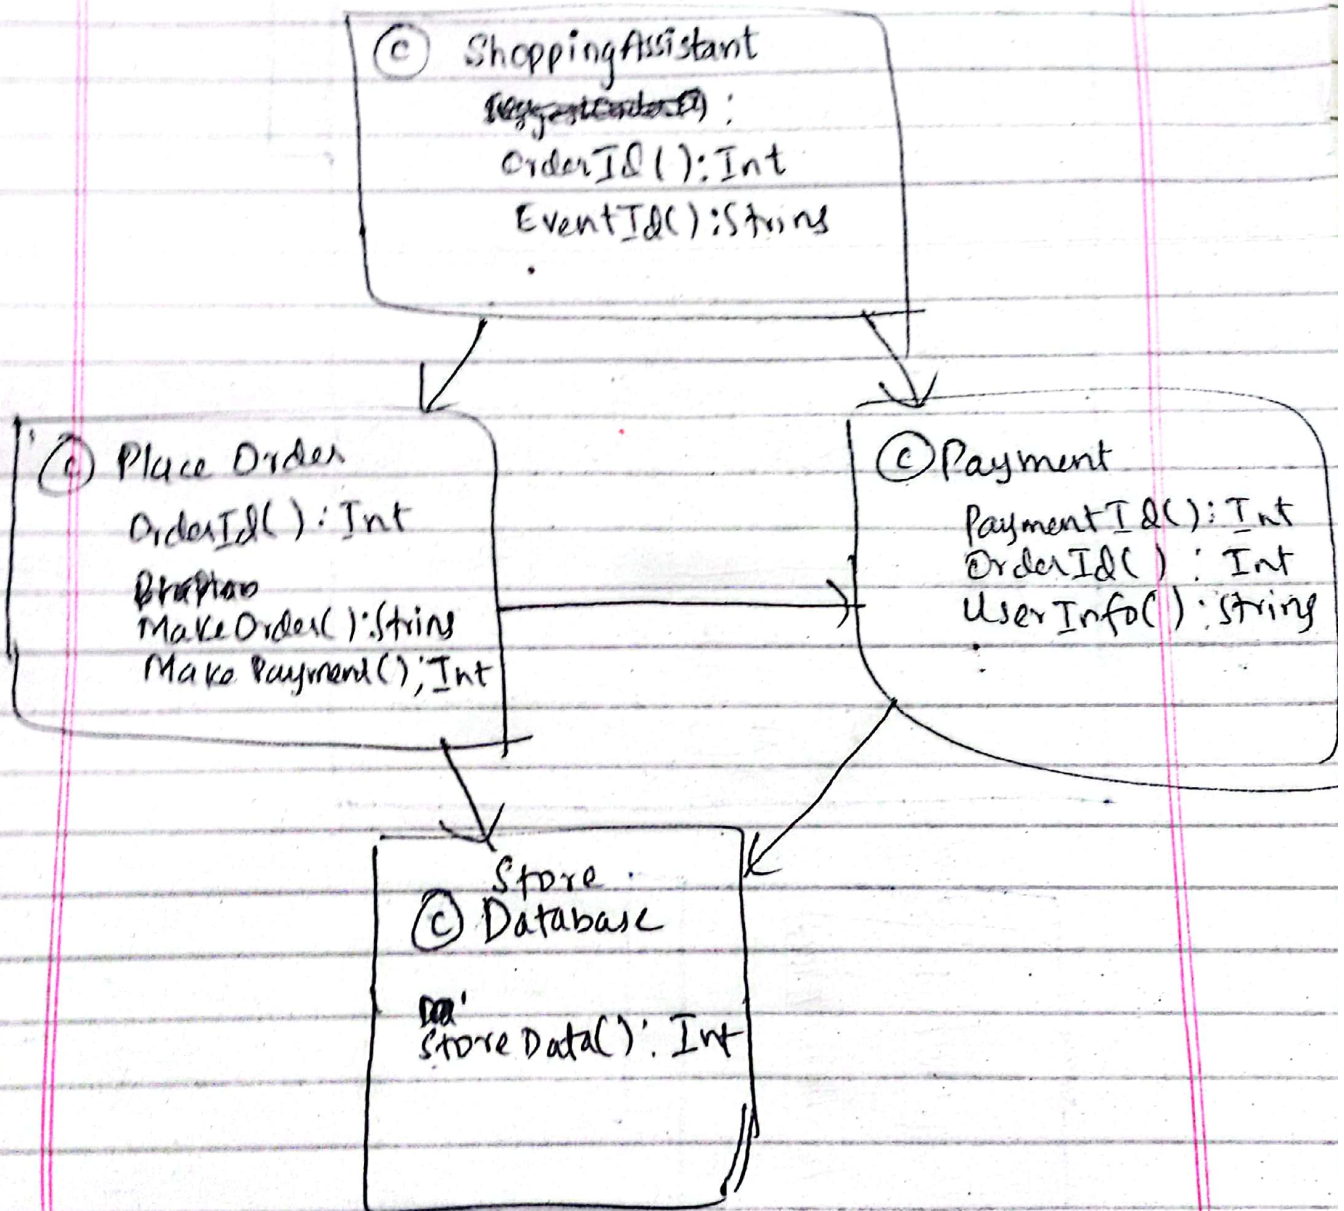 C ShoppingAssistant
:
OrderId():Int
EventId():String
C Place Order
OrderId():Int
MakeOrder():String
Make Payment();Int
C Payment
PaymentId():Int
OrderId():Int
UserInfo():String
Store
C Database
Store Data():Int